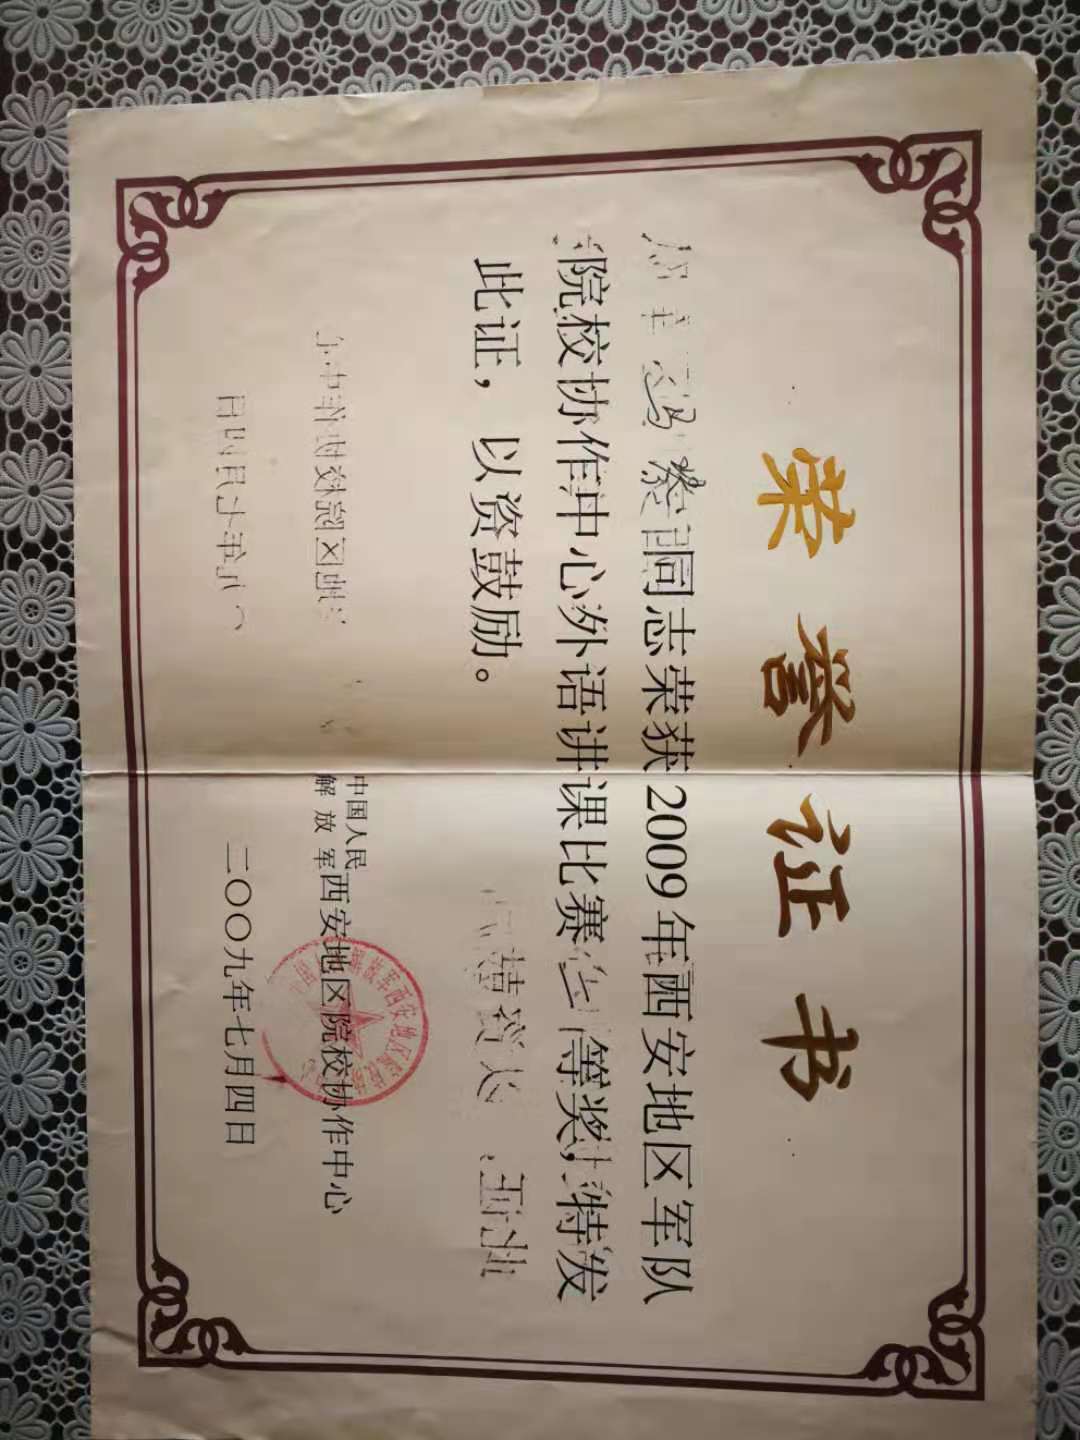 荣誉证书
同志荣获2009年西安地区军队
院校协作中心外语讲课比赛 等奖,特发
此证，以资鼓励。
中国人民
解放军西安地区院校协作中心
二〇〇九年七月四日